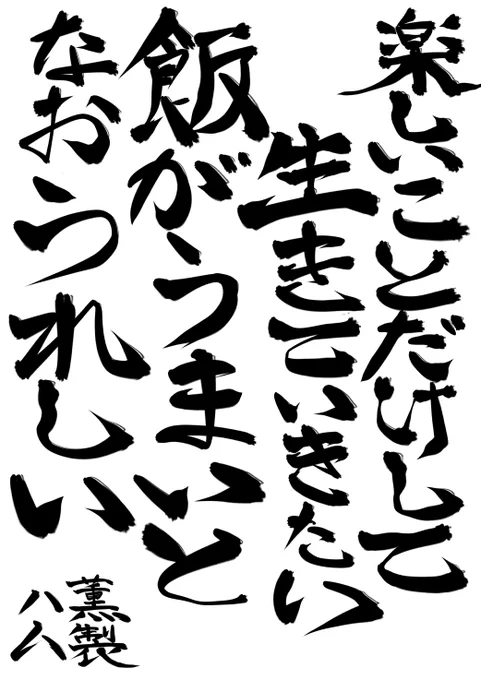 楽しいことだけして
生きていきたい
飯がうまいと
なおうれしい
薫製
ハム